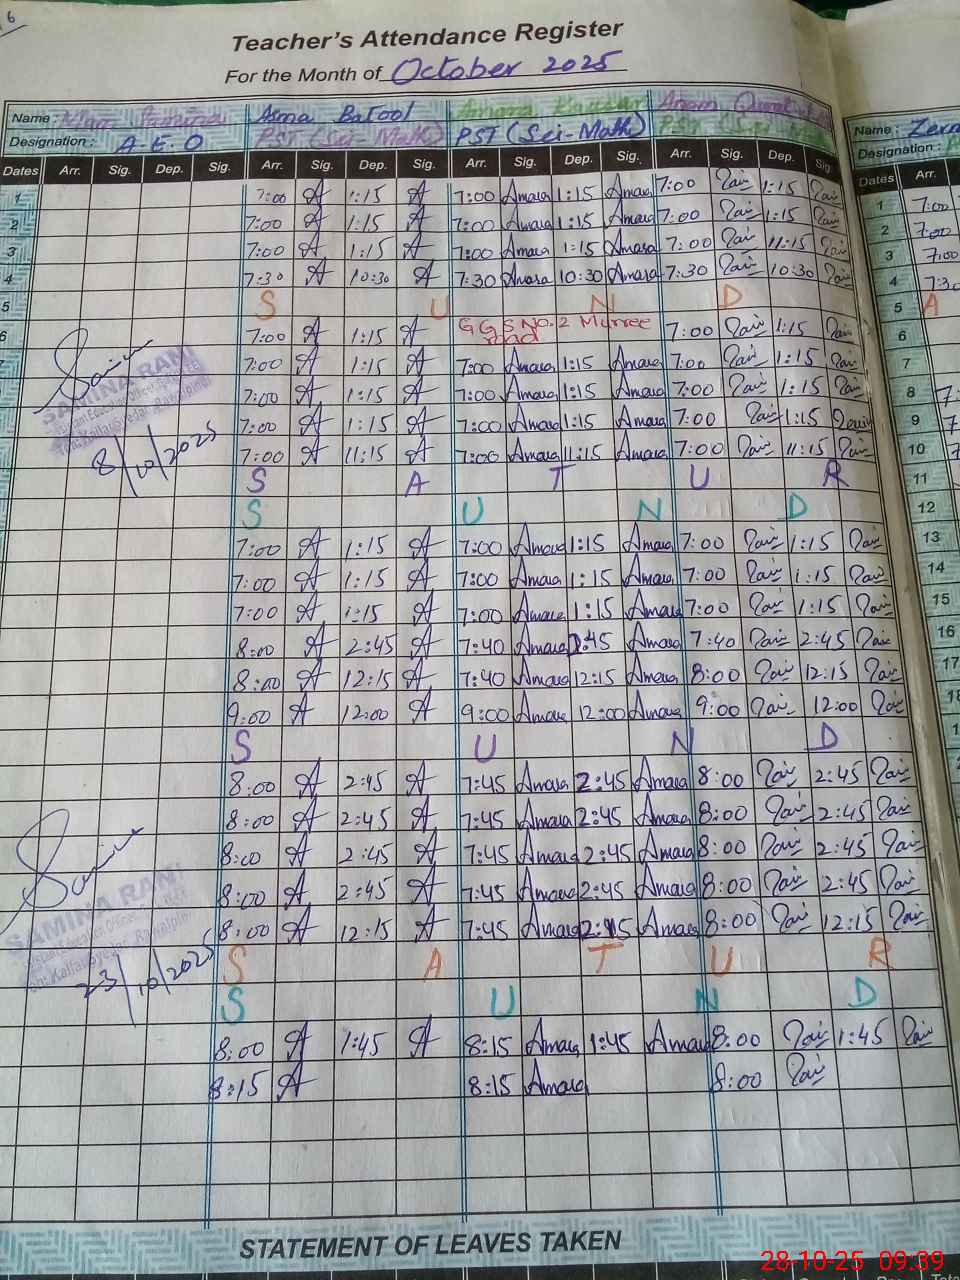 6
Teacher's Attendance Register
For the Month of October 2025
Name: Asma Batool Name: Zern
Designation: A E O PST (Sci-Math) PST (Sci-Math) Designation:
Dates Arr. Sig. Dep. Sig. Arr. Sig. Dep. Sig. Arr. Sig. Dep. Sig. Arr. Sig. Dep. Sig. Dates Arr.
1 7:00 A 1:15 A 7:00 Amara 1:15 Amara 7:00 1:15 1 7:00
2 7:00 A 1:15 A 7:00 Amara 1:15 Amara 7:00 1:15 2 7:00
3 7:00 A 1:15 A 7:00 Amara 1:15 Amara 7:00 11:15 3 7:00
4 7:30 A 10:30 A 7:30 Amara 10:30 Amara 7:30 10:30 4 7:30
5 S U N D 5 A
6 7:00 A 1:15 A G G S No. 2 Murree road 7:00 1:15 6
7:00 A 1:15 A 7:00 Amara 1:15 Amara 7:00 1:15 7
7:00 A 1:15 A 7:00 Amara 1:15 Amara 7:00 1:15 8 7:
7:00 A 1:15 A 7:00 Amara 1:15 Amara 7:00 1:15 9 7
7:00 A 11:15 A 7:00 Amara 11:15 Amara 7:00 11:15 10
SAMINA RANI
8/10/2025
S A T U R 11
S U N D 12
7:00 A 1:15 A 7:00 Amara 1:15 Amara 7:00 1:15 13
7:00 A 1:15 A 7:00 Amara 1:15 Amara 7:00 1:15 14
7:00 A 1:15 A 7:00 Amara 1:15 Amara 7:00 1:15 15
8:00 A 2:45 A 7:40 Amara 2:45 Amara 7:40 2:45 16
8:00 A 12:15 A 7:40 Amara 12:15 Amara 8:00 12:15 17
9:00 A 12:00 A 9:00 Amara 12:00 Amara 9:00 12:00 18
S U N D
8:00 A 2:45 A 7:45 Amara 2:45 Amara 8:00 2:45
8:00 A 2:45 A 7:45 Amara 2:45 Amara 8:00 2:45
8:00 A 2:45 A 7:45 Amara 2:45 Amara 8:00 2:45
8:00 A 2:45 A 7:45 Amara 2:45 Amara 8:00 2:45
8:00 A 12:15 A 7:45 Amara 2:15 Amara 8:00 12:15
SAMINA RANI
23/10/2025
S A T U R
S U N D
8:00 A 1:45 A 8:15 Amara 1:45 Amara 8:00 1:45
8:15 A 8:15 Amara 8:00
STATEMENT OF LEAVES TAKEN
28-10-25 09:39